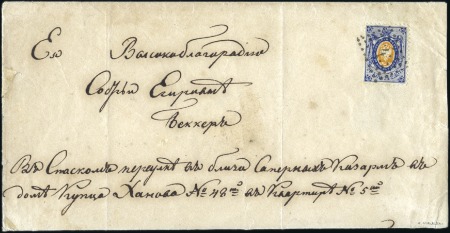 Ея Высокоблагородію
Софьи Егоровнѣ
Беккеръ
Въ Спаскомъ переулкѣ въ близи Саперныхъ Казармъ въ
домѣ Купца Ханова № 48го въ Квартирѣ № 5го